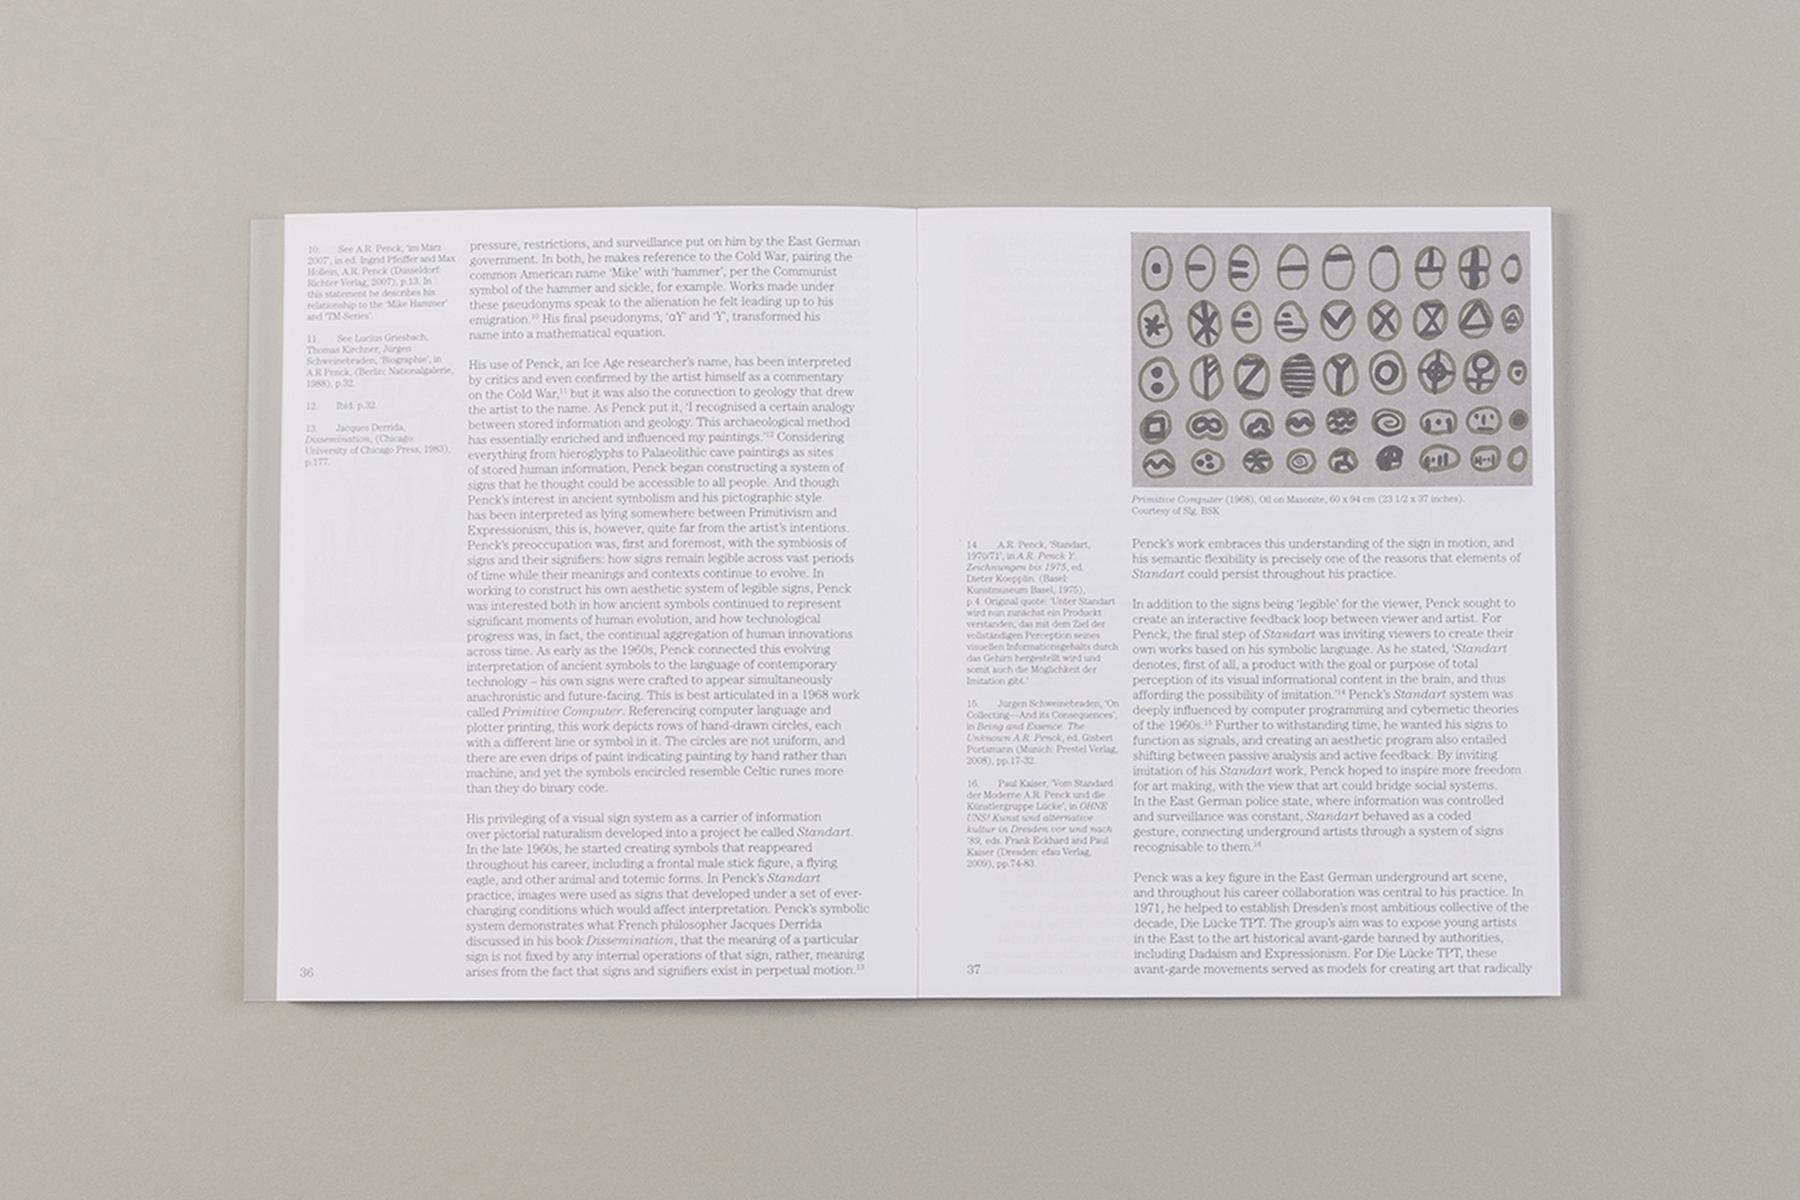 10. See A.R. Penck, 'Im März
2007', in ed. Ingrid Pfeiffer and Max
Hollein, A.R. Penck (Dusseldorf:
Richter Verlag, 2007), p.13. In
this statement he describes his
relationship to the 'Mike Hammer'
and 'TM-Series'.
11. See Lucius Griesbach,
Thomas Kirchner, Jürgen
Schweinebraden, 'Biographie', in
A.R Penck, (Berlin: Nationalgalerie,
1988), p.32.
12. Ibid. p.32.
13. Jacques Derrida,
Dissemination, (Chicago:
University of Chicago Press, 1983),
p.177.
pressure, restrictions, and surveillance put on him by the East German
government. In both, he makes reference to the Cold War, pairing the
common American name 'Mike' with 'hammer', per the Communist
symbol of the hammer and sickle, for example. Works made under
these pseudonyms speak to the alienation he felt leading up to his
emigration.10 His final pseudonyms, 'αY' and 'Y', transformed his
name into a mathematical equation.
His use of Penck, an Ice Age researcher's name, has been interpreted
by critics and even confirmed by the artist himself as a commentary
on the Cold War,11 but it was also the connection to geology that drew
the artist to the name. As Penck put it, 'I recognised a certain analogy
between stored information and geology. This archaeological method
has essentially enriched and influenced my paintings.'12 Considering
everything from hieroglyphs to Palaeolithic cave paintings as sites
of stored human information, Penck began constructing a system of
signs that he thought could be accessible to all people. And though
Penck's interest in ancient symbolism and his pictographic style
has been interpreted as lying somewhere between Primitivism and
Expressionism, this is, however, quite far from the artist's intentions.
Penck's preoccupation was, first and foremost, with the symbiosis of
signs and their signifiers: how signs remain legible across vast periods
of time while their meanings and contexts continue to evolve. In
working to construct his own aesthetic system of legible signs, Penck
was interested both in how ancient symbols continued to represent
significant moments of human evolution, and how technological
progress was, in fact, the continual aggregation of human innovations
across time. As early as the 1960s, Penck connected this evolving
interpretation of ancient symbols to the language of contemporary
technology – his own signs were crafted to appear simultaneously
anachronistic and future-facing. This is best articulated in a 1968 work
called Primitive Computer. Referencing computer language and
plotter printing, this work depicts rows of hand-drawn circles, each
with a different line or symbol in it. The circles are not uniform, and
there are even drips of paint indicating painting by hand rather than
machine, and yet the symbols encircled resemble Celtic runes more
than they do binary code.
His privileging of a visual sign system as a carrier of information
over pictorial naturalism developed into a project he called Standart.
In the late 1960s, he started creating symbols that reappeared
throughout his career, including a frontal male stick figure, a flying
eagle, and other animal and totemic forms. In Penck's Standart
practice, images were used as signs that developed under a set of ever-
changing conditions which would affect interpretation. Penck's symbolic
system demonstrates what French philosopher Jacques Derrida
discussed in his book Dissemination, that the meaning of a particular
sign is not fixed by any internal operations of that sign, rather, meaning
arises from the fact that signs and signifiers exist in perpetual motion.13
36
Primitive Computer (1968), Oil on Masonite, 60 x 94 cm (23 1/2 x 37 inches).
Courtesy of Slg. BSK
14. A.R. Penck, 'Standart,
1970/71', in A.R. Penck Y.
Zeichnungen bis 1975, ed.
Dieter Koepplin. (Basel:
Kunstmuseum Basel, 1975),
p.4. Original quote: 'Unter Standart
wird nun zunächst ein Produckt
verstanden, das mit dem Ziel der
vollständigen Perception seines
visuellen Informationsgehalts durch
das Gehirn hergestellt wird und
somit auch die Möglichkeit der
Imitation gibt.'
15. Jürgen Schweinebraden, 'On
Collecting—And its Consequences',
in Being and Essence. The
Unknown A.R. Penck, ed. Gisbert
Portsmann (Munich: Prestel Verlag,
2008), pp.17-32.
16. Paul Kaiser, 'Vom Standard
der Moderne A.R. Penck und die
Künstlergruppe Lücke', in OHNE
UNS! Kunst und alternative
kultur in Dresden vor und nach
'89, eds. Frank Eckhard and Paul
Kaiser (Dresden: efau Verlag,
2009), pp.74-83.
Penck's work embraces this understanding of the sign in motion, and
his semantic flexibility is precisely one of the reasons that elements of
Standart could persist throughout his practice.
In addition to the signs being 'legible' for the viewer, Penck sought to
create an interactive feedback loop between viewer and artist. For
Penck, the final step of Standart was inviting viewers to create their
own works based on his symbolic language. As he stated, 'Standart
denotes, first of all, a product with the goal or purpose of total
perception of its visual informational content in the brain, and thus
affording the possibility of imitation.'14 Penck's Standart system was
deeply influenced by computer programming and cybernetic theories
of the 1960s.15 Further to withstanding time, he wanted his signs to
function as signals, and creating an aesthetic program also entailed
shifting between passive analysis and active feedback. By inviting
imitation of his Standart work, Penck hoped to inspire more freedom
for art making, with the view that art could bridge social systems.
In the East German police state, where information was controlled
and surveillance was constant, Standart behaved as a coded
gesture, connecting underground artists through a system of signs
recognisable to them.16
Penck was a key figure in the East German underground art scene,
and throughout his career collaboration was central to his practice. In
1971, he helped to establish Dresden's most ambitious collective of the
decade, Die Lücke TPT. The group's aim was to expose young artists
in the East to the art historical avant-garde banned by authorities,
including Dadaism and Expressionism. For Die Lücke TPT, these
avant-garde movements served as models for creating art that radically
37